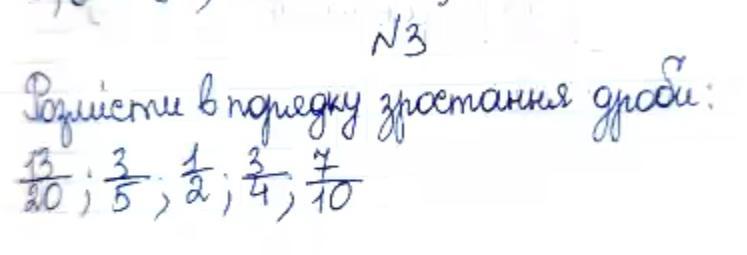 №3
Розмісти в порядку зростання дроби:
13/20; 3/5; 1/2; 3/4; 7/10